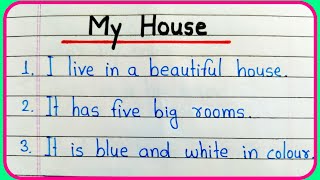 My House
1. I live in a beautiful house.
2. It has five big rooms.
3. It is blue and white in colour.